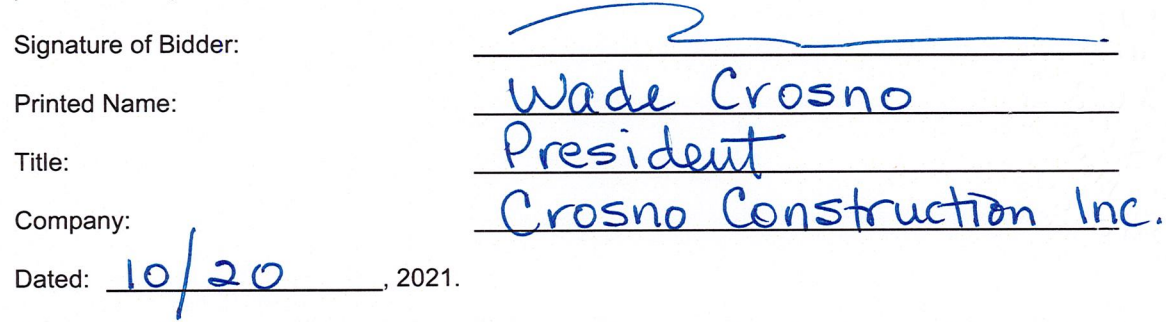 Signature of Bidder:
Printed Name: Wade Crosno
Title: President
Company: Crosno Construction Inc.
Dated: 10/20, 2021.